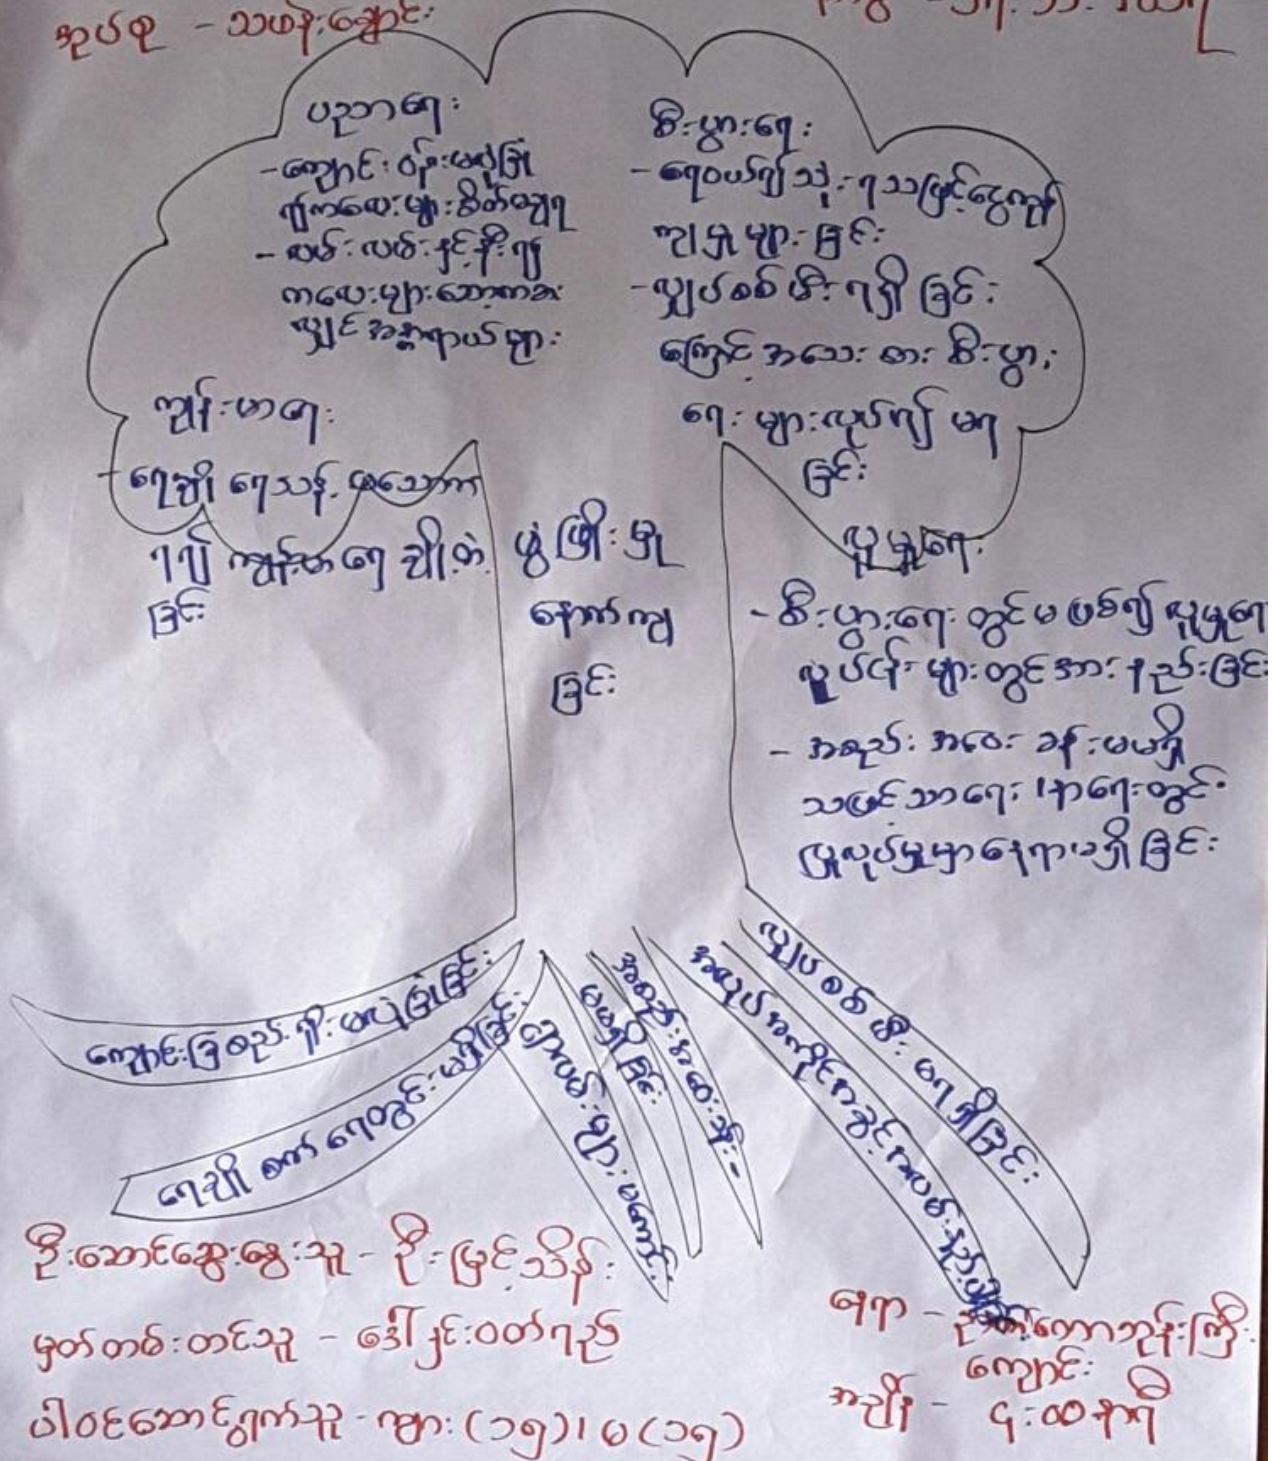 အုပ်စု - သဖန်းချောင်း
ပညာရေး
- ကျောင်းဝန်းမလုံခြုံ
၍ကလေးများစိတ်မချရ
- လမ်းနှင့်နီး၍
ကလေးများဆော့ကစား
လျှင်အန္တရာယ်များ
စီးပွားရေး
- ရေဝယ်၍သုံးရသဖြင့်ငွေကုန်
ကျမှုများခြင်း
- လျှပ်စစ်မီးရရှိခြင်း
ကြောင့်အသေးစားစီးပွား
ရေးများလုပ်၍မရ
ခြင်း
ကျန်းမာရေး
- ရေချိုရေသန့်မသောက်
ရ၍ကျန်းမာရေးချို့တဲ့
ခြင်း
ဖွံ့ဖြိုးမှု
နောက်ကျ
ခြင်း
လူမှုရေး
- စီးပွားရေးတွင်မဖြစ်၍လူမှုရေး
လုပ်ငန်းများတွင်အားနည်းခြင်း
- အစည်းအဝေးခန်းမမရှိ
သဖြင့်သာရေး၊နာရေးတွင်
ပြုလုပ်မှုမှာနေရာမရှိခြင်း
ကျောင်းခြံစည်းရိုးမလုံခြုံခြင်း
ရေချိုစက်ရေတွင်းမရှိခြင်း
ရွာလမ်းများမကောင်း
အစည်းအဝေးခန်း
မမရှိခြင်း
အလုပ်အကိုင်အခွင့်အလမ်းနည်းပါး
လျှပ်စစ်မီးမရရှိခြင်း
ဦးဆောင်ဆွေးနွေးသူ - ဦးမြင့်သိန်း
မှတ်တမ်းတင်သူ - ဒေါ်နှင်းဝတ်ရည်
ပါဝင်ဆောင်ရွက်သူ - ကျား (၁၅)၊ မ (၁၅)
နေရာ - ဘုန်းကြီး
ကျောင်း
အချိန် - ၄:၀၀ နာရီ